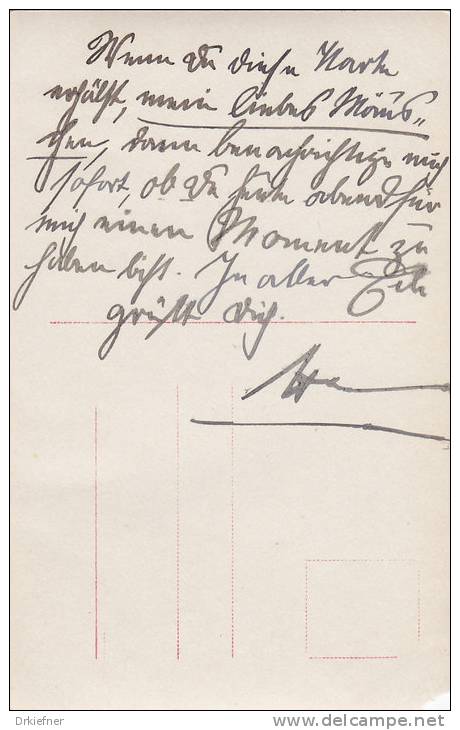 Wenn Du diese Karte
erhälst, mein liebes Mäus-
chen, dann benachrichtige mich
sofort, ob Du heute abend für
mich einen Moment zu
haben bist. In aller Eile
grüßt Dich.
Drkiefner
www.delcampe.net